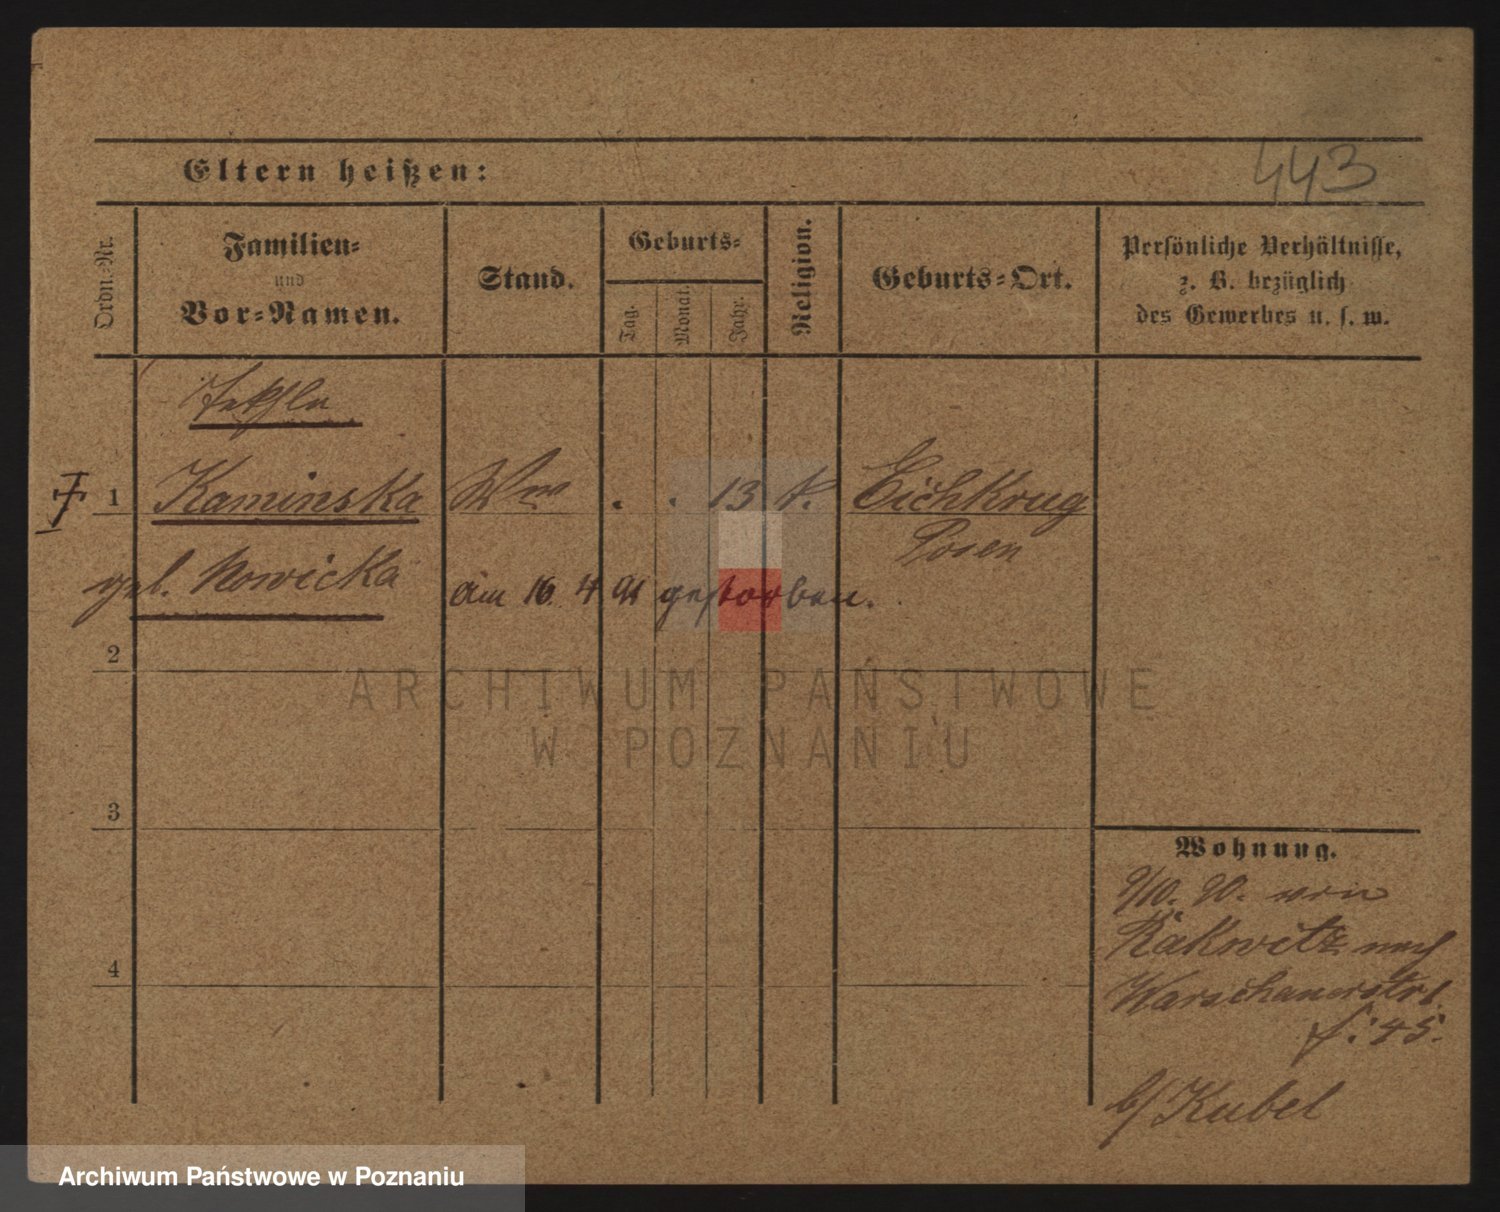 443
Eltern heißen:
Ordn.-Nr.
Familien-
und
Vor-Namen.
Stand.
Geburts-
Tag.
Monat.
Jahr.
Religion.
Geburts-Ort.
Persönliche Verhältnisse,
z. B. bezüglich
des Gewerbes u. s. w.
1 Kaminska Ww . . 13 k. Eichkrug
Posen
geb. Nowicka am 16 4 91 gestorben.
2
3
4
Wohnung.
9/10. 90. von
Rakwitz nach
Warschauerstr
45.
b/ Kubel
ARCHIWUM PAŃSTWOWE
W POZNANIU
Archiwum Państwowe w Poznaniu